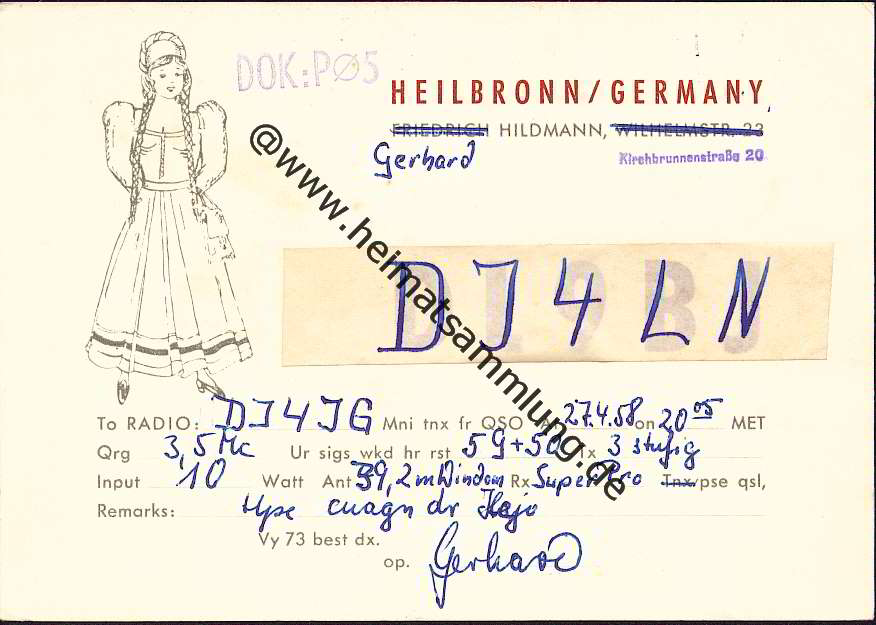 DOK:PØ5
HEILBRONN/GERMANY,
FRIEDRICH HILDMANN, WILHELMSTR. 22
Gerhard
Kirchbrunnenstraße 20
@www.heimatsammlung.de
DJ4LN
To RADIO: DJ4JG Mni tnx fr QSO 27.4.58 on 20 05 MET
Qrg 3,5 Mc Ur sigs wkd hr rst 59+50 tx 3 stufig
Input 10 Watt Ant 39,2m Windom Rx Super Pro Tnx/pse qsl,
Remarks: Hpe cuagn dr Hajo
Vy 73 best dx.
op. Gerhard